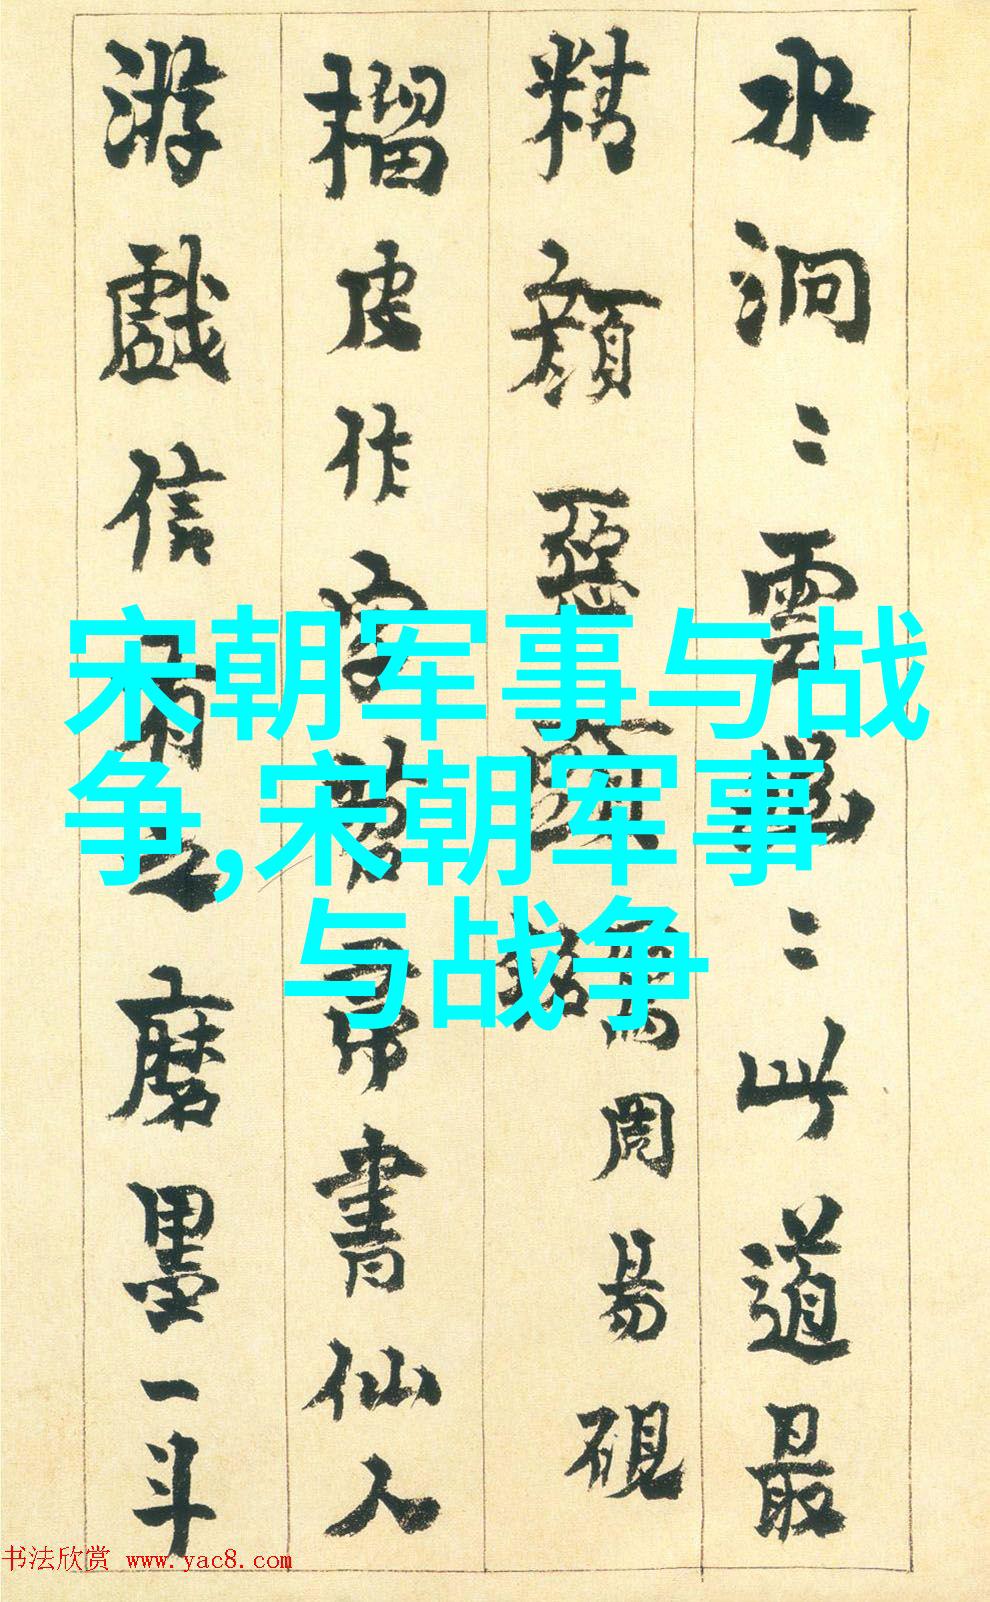 水洞〻雲〻此道最
精顏惡周易硯
榴皮作字帚書仙人
游戲信有之磨墨一斗
宋朝军事与战
争,宋朝军事
与战争
书法欣赏 www.yac8.com